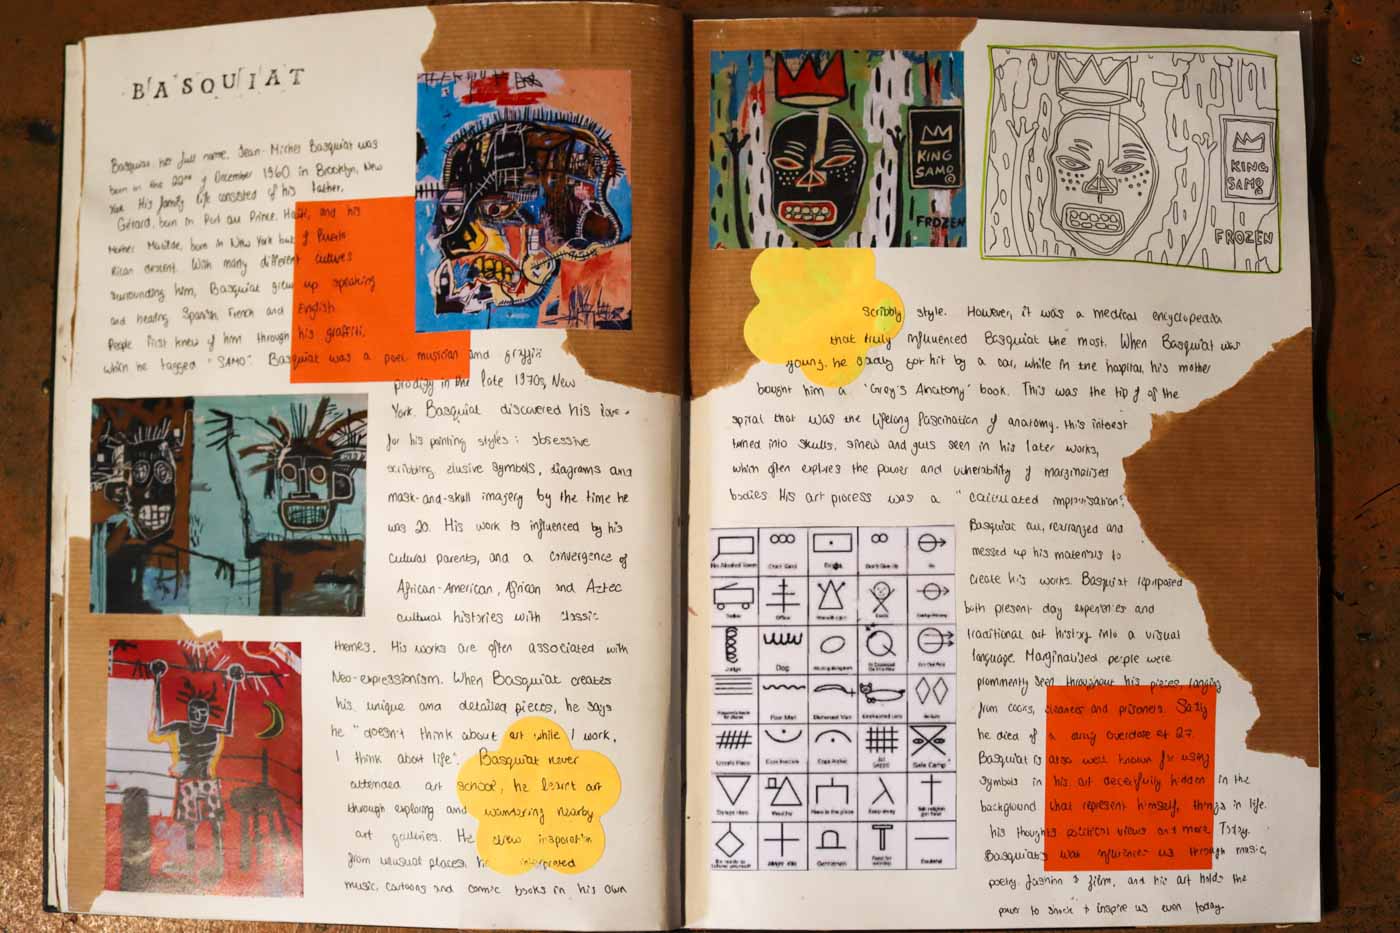 BASQUIAT
full name. Jean-Michel Basquiat was
born in the 22nd of December 1960 in Brooklyn, New
York. His family life consisted of his father,
Gerard, born in Port au Prince. Haiti, and his
Mother Matilde, born in New York but of Puerto
Rican descent. With many different cultures
surrounding him, Basquiat grew up speaking
and reading Spanish French and English
People first knew of him through his graffiti,
which he tagged "SAMO". Basquiat was a poet musician and graffiti
prodigy in the late 1970s, New
York. Basquiat discovered his love
for his painting styles: obsessive
scribbling elusive symbols, diagrams and
mask-and-skull imagery by the time he
was 20. His work is influenced by his
cultural parents, and a convergence of
African-American, African and Aztec
cultural histories with classic
themes. His works are often associated with
Neo-expressionism. When Basquiat creates
his unique and detailed pieces, he says
he "doesn't think about art while I work,
I think about life". Basquiat never
attended art school, he learnt art
through exploring and wandering nearby
art galleries. He drew inspiration
from unusual places, he interpreted
music, cartoons and comic books in his own
KING
SAMO
©
FROZEN
KING
SAMO
FROZEN
Scribbly style. However, it was a medical encyclopedia
that truly influenced Basquiat the most. When Basquiat was
young, he sadly got hit by a car, while in the hospital, his mother
bought him a 'Grey's Anatomy' book. This was the tip of the
spiral that was the lifelong fascination of anatomy. this interest
turned into skulls, sinew and guts seen in his later works,
which often explores the power and vulnerability of marginalised
bodies. His art process was a "calculated improvisation".
Basquiat cut, rearranged and
messed up his materials to
create his works. Basquiat repurposed
both present day experiences and
traditional art history into a visual
language. Marginalised people were
prominently seen throughout his pieces, ranging
from cooks, cleaners and prisoners. Sadly
he died of a drug overdose at 27.
Basquiat is also well known for using
symbols in his art deceitfully hidden in the
background what represent himself, things in life.
his thoughts political views and more. Today.
Basquiat's was influences us through music,
poetry. fashion & film, and his art holds the
power to shock & inspire us even today.
Office
Dog
Poor Man
Dishonest Man
Safe Camp
Gentleman